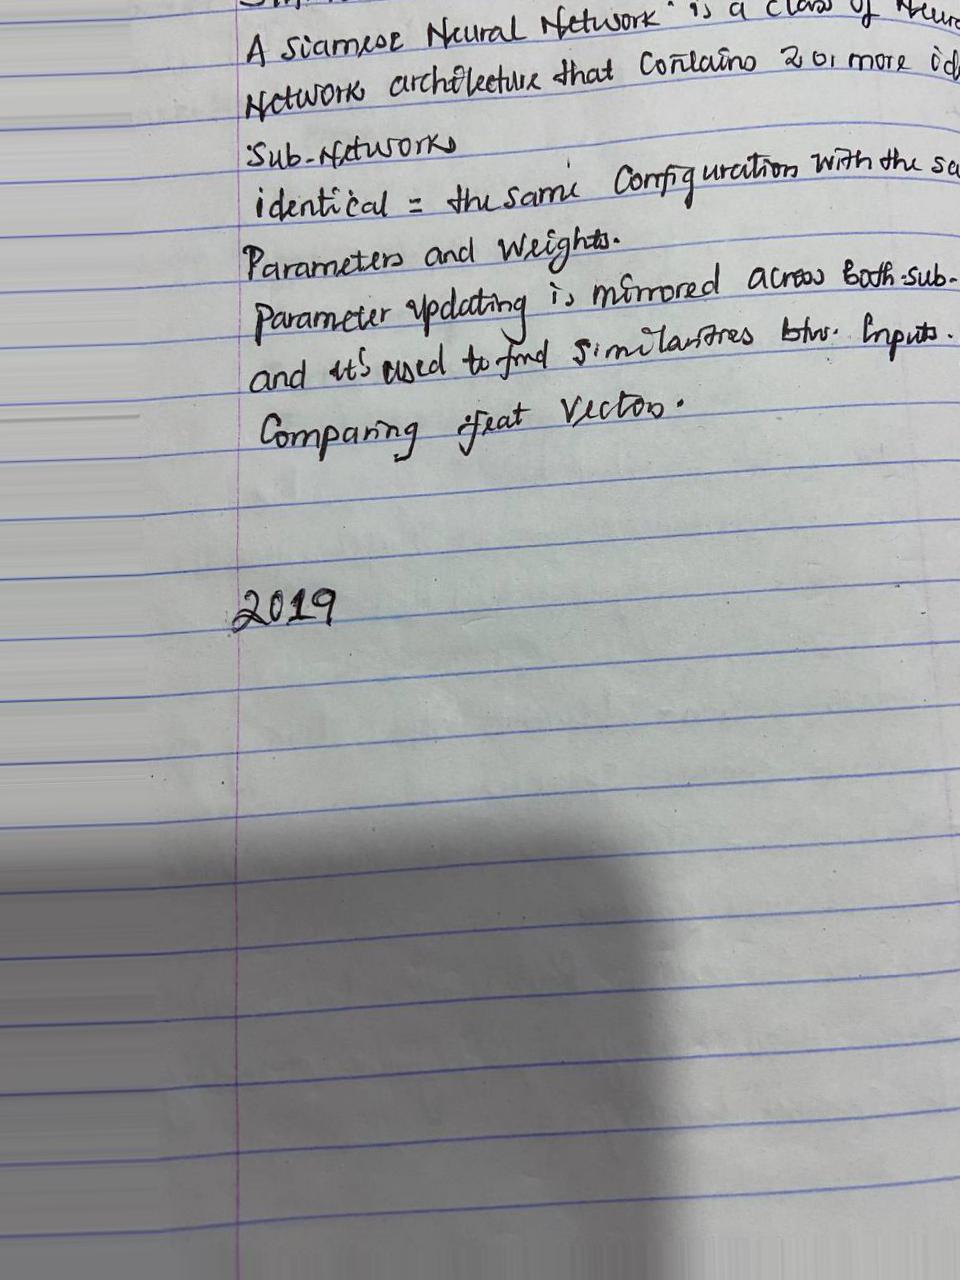 A siamese Neural Network is a class of Neur
Network architecture that contains 2 or more id
Sub-Networks
identical = the same Configuration with the sa
Parameters and Weights.
Parameter updating is mirrored across both sub-
and it's used to find similarities btw. Inputs.
Comparing feat Vectors.
2019